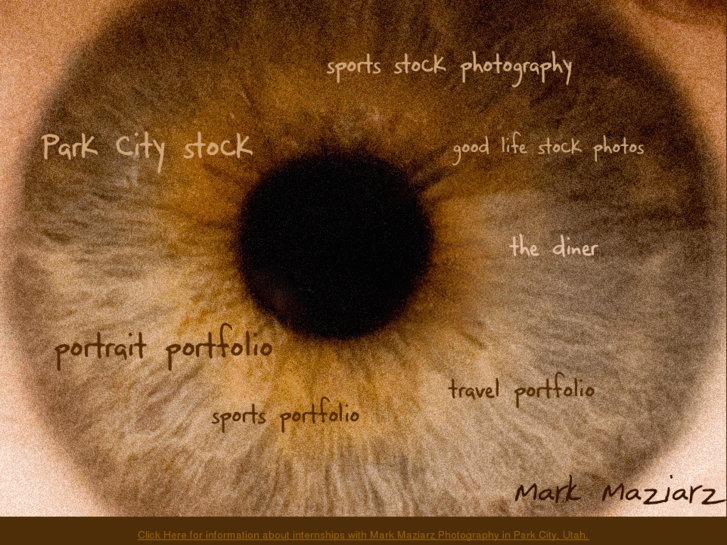 sports stock photography
Park City stock
good life stock photos
the diner
portrait portfolio
travel portfolio
sports portfolio
Mark Maziarz
Click Here for information about internships with Mark Maziarz Photography in Park City, Utah.